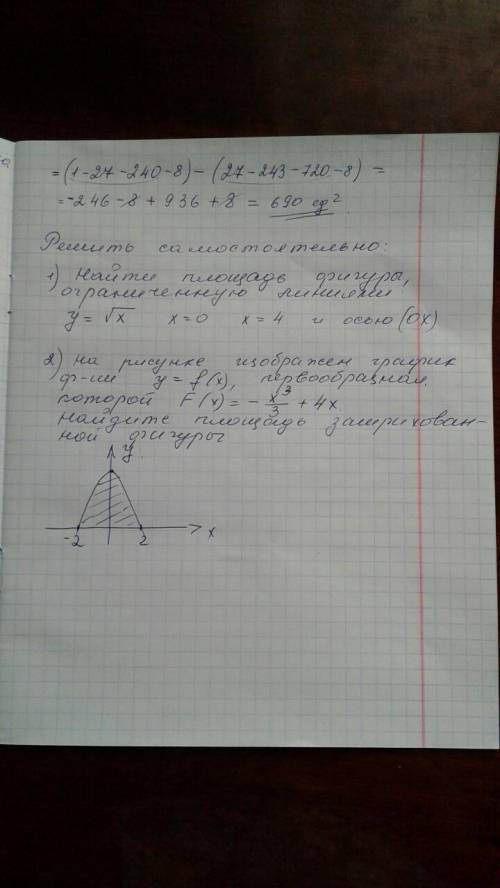 = (1-27-240-8) - (27-243-720-8) =
= -246-8+936+8 = 690 ед².
Решить самостоятельно:
1) Найти площадь фигуры,
ограниченную линиями
y = √x x=0 x=4 и осью (OX)
2) на рисунке изображен график
ф-ии y = f(x), первообразная
которой F(x) = - x³/3 + 4x
найдите площадь заштрихован-
ной фигуры
y
-2 2 x